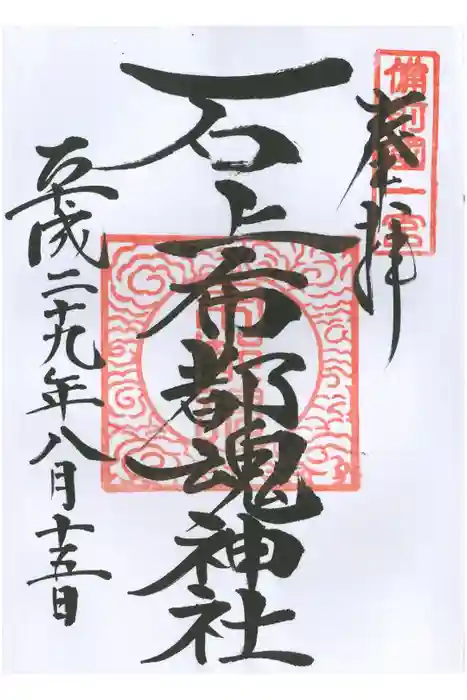 奉拝
備前國一宮
石上布都魂神社
平成二十九年八月十五日